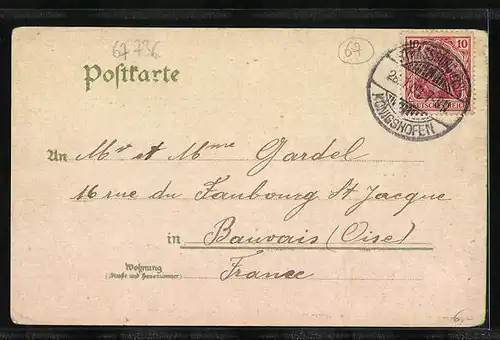 67 736
67
Postkarte
10 10
DEUTSCHES REICH
KÖNIGSHOFEN
An Mr et Mme Gardel
16 rue du Faubourg St Jacque
in Bauvais (Oise)
Wohnung
(Straße und Hausnummer)
France
6,-